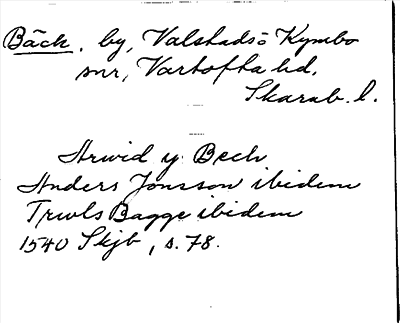 Bäck, by, Valstads o Kymbo
snr, Vartofta hd,
Skarab. l.
Arwid y Bech
Anders Jonsson ibidem
Trwls Bagge ibidem
1540 Skjb, s. 78.